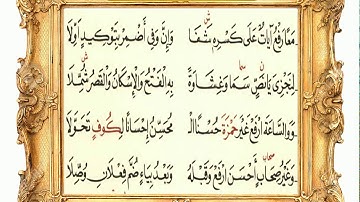 مَعًا رَفْعُ آيَاتٍ عَلَى كَسْرِهِ شَفَا وَإِنَّ وَفِي أَضْمِرْ بِتَوْكِيدٍ اوَّلَا
لِيَجْزِيَ يَا نَصٍّ سَمَا وَغِشَاوَةً بِهِ الْفَتْحُ وَالْإِسْكَانُ وَالْقَصْرُ شُمِّلَا
وَوَالسَّاعَةَ ارْفَعْ غَيْرَ حَمْزَةَ حُسْنًا الْـ مُحَسِّنُ إِحْسَانًا لِكُوفٍ تَحَوَّلَا
وَغَيْرُ صِحَابٍ أَحْسَنَ ارْفَعْ وَقَبْلَهُ وَبَعْدُ بِيَاءٍ ضُمَّ فِعْلَانِ وُصِّلَا